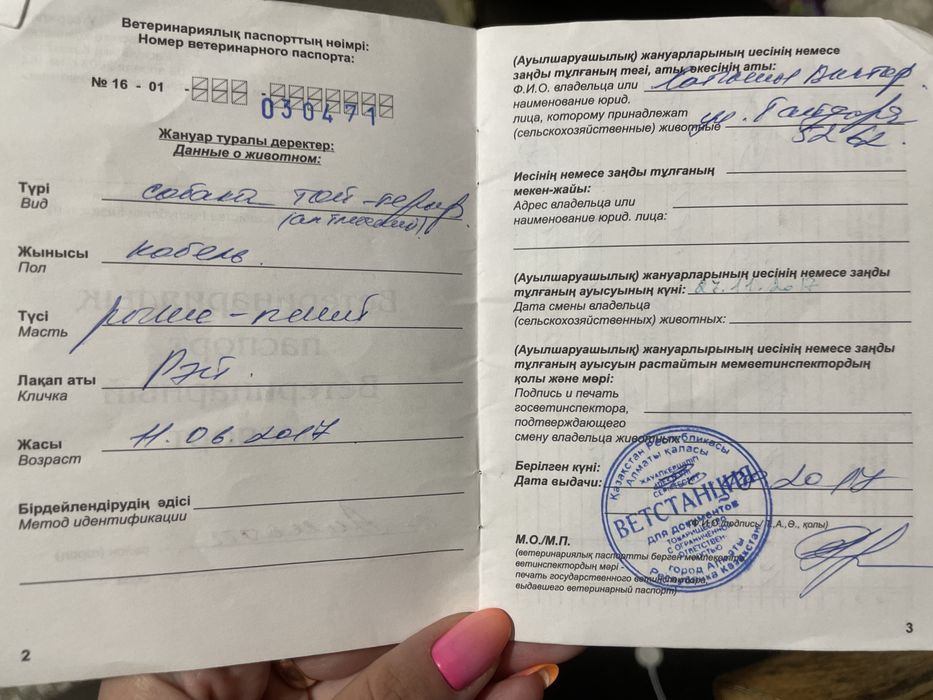 Ветеринариялық паспорттың нөімрі:
Номер ветеринарного паспорта:
№ 16 - 01 - -
030471
Жануар туралы деректер:
Данные о животном:
Түрі
Вид собака той-терьер
(английский)
Жынысы
Пол кобель
Түсі
Масть рыже-пегий
Лақап аты
Кличка Рэй
Жасы
Возраст 11.06.2017
Бірдейлендірудің әдісі
Метод идентификации
2
(Ауылшаруашылық) жануарларының иесінің немесе
заңды тұлғаның тегі, аты, әкесінің аты:
Ф.И.О. владельца или
наименование юрид.
лица, которому принадлежат ул. Гайдара
(сельскохозяйственные) животные
Иесінің немесе заңды тұлғаның
мекен-жайы:
Адрес владельца или
наименование юрид. лица:
(Ауылшаруашылық) жануарларының иесінің немесе заңды
тұлғаның ауысуының күні: 27.11.2017
Дата смены владельца
(сельскохозяйственных) животных:
(Ауылшаруашылық) жануарлырының иесінің немесе заңды
тұлғаның ауысуын растайтын мемветинспектордың
қолы және мөрі:
Подпись и печать
госветинспектора,
подтверждающего
смену владельца животных
Берілген күні:
Дата выдачи: 2017
М.О./М.П.
(ветеринариялық паспортты берген
ветинспектордың мөрі -
печать государственного ветинспектора,
выдавшего ветеринарный паспорт)
Қазақстан Республикасы
Алматы қаласы
ВЕТСТАНЦИЯ
для документов
товарищество
с ограниченной
ответствен-
ностью
город Алматы
Республика Казахстан
3